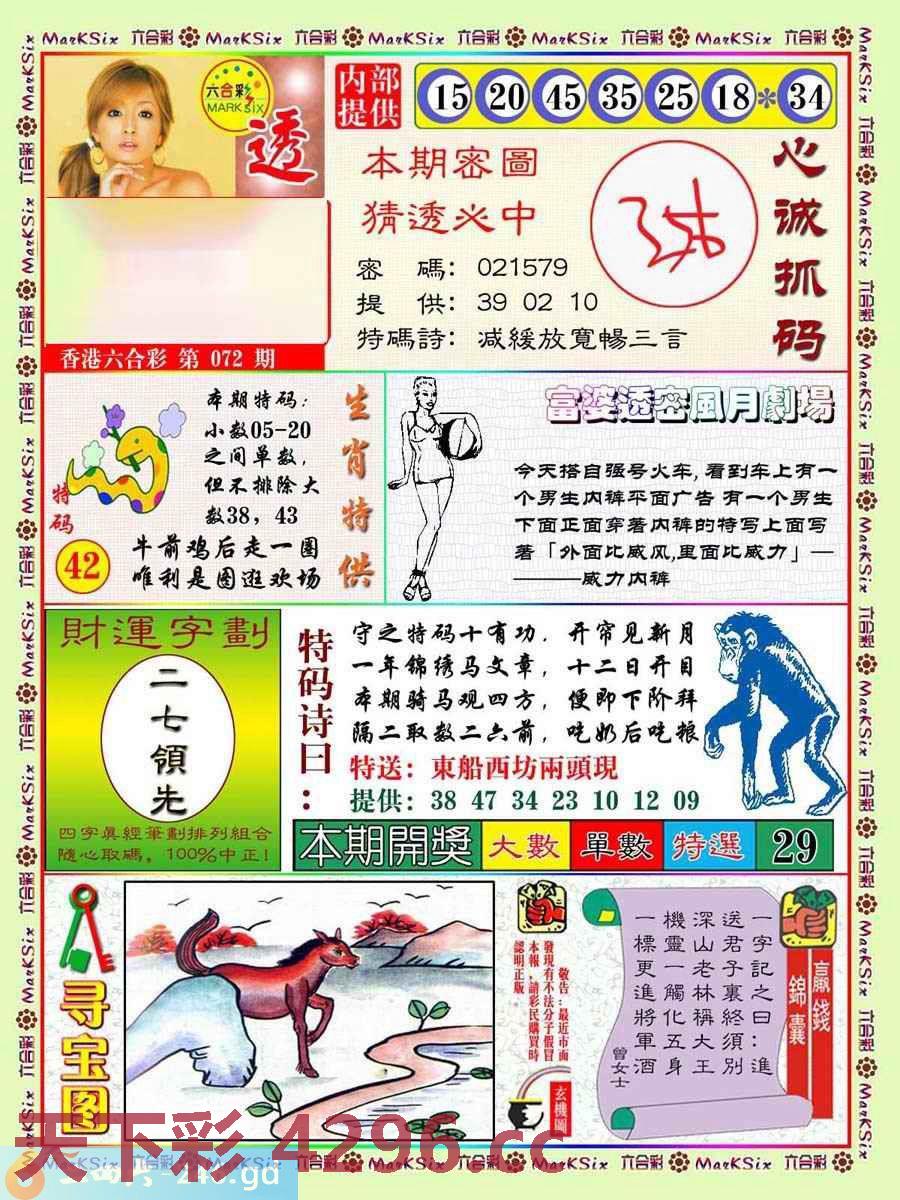 MarKSix 六合彩 MarKSix 六合彩 MarKSix 六合彩 MarKSix 六合彩 MarKSix 六合彩
六合彩
MARK SIX
透
香港六合彩 第 072 期
内部
提供
15 20 45 35 25 18 * 34
本期密圖
猜透必中
密 碼: 021579
提 供: 39 02 10
特碼詩: 减緩放寬暢三言
心诚抓码
本期特码:
小数05-20
之间单数,
但不排除大
数38, 43
特码
42
牛前鸡后走一圈
唯利是图逛欢场
生肖特供
富婆透密風月劇場
今天搭自强号火车,看到车上有一
个男生内裤平面广告 有一个男生
下面正面穿着内裤的特写上面写
著「外面比威风,里面比威力」—
———威力内裤
財運字劃
二七領先
四字真經筆劃排列組合
隨心取碼, 100%中正!
特码诗曰:
守之特码十有功, 开帘见新月
一年锦绣马文章, 十二日开目
本期骑马观四方, 便即下阶拜
隔二取数二六前, 吃奶后吃粮
特送: 東船西坊兩頭現
提供: 38 47 34 23 10 12 09
本期開獎 大數 單數 特選 29
寻宝图
敬告:最近市面
發現有不法分子假冒
本報,請彩民購買時
認明正版。
玄機圖
贏錢
錦囊
一字記之曰:進
送君子裏終須別
深山老林稱大王
機靈一觸化五身
一標更進將軍酒
曾女士
天下彩 4296.cc
MarKSix 六合彩 MarKSix 六合彩 MarKSix 六合彩 MarKSix 六合彩